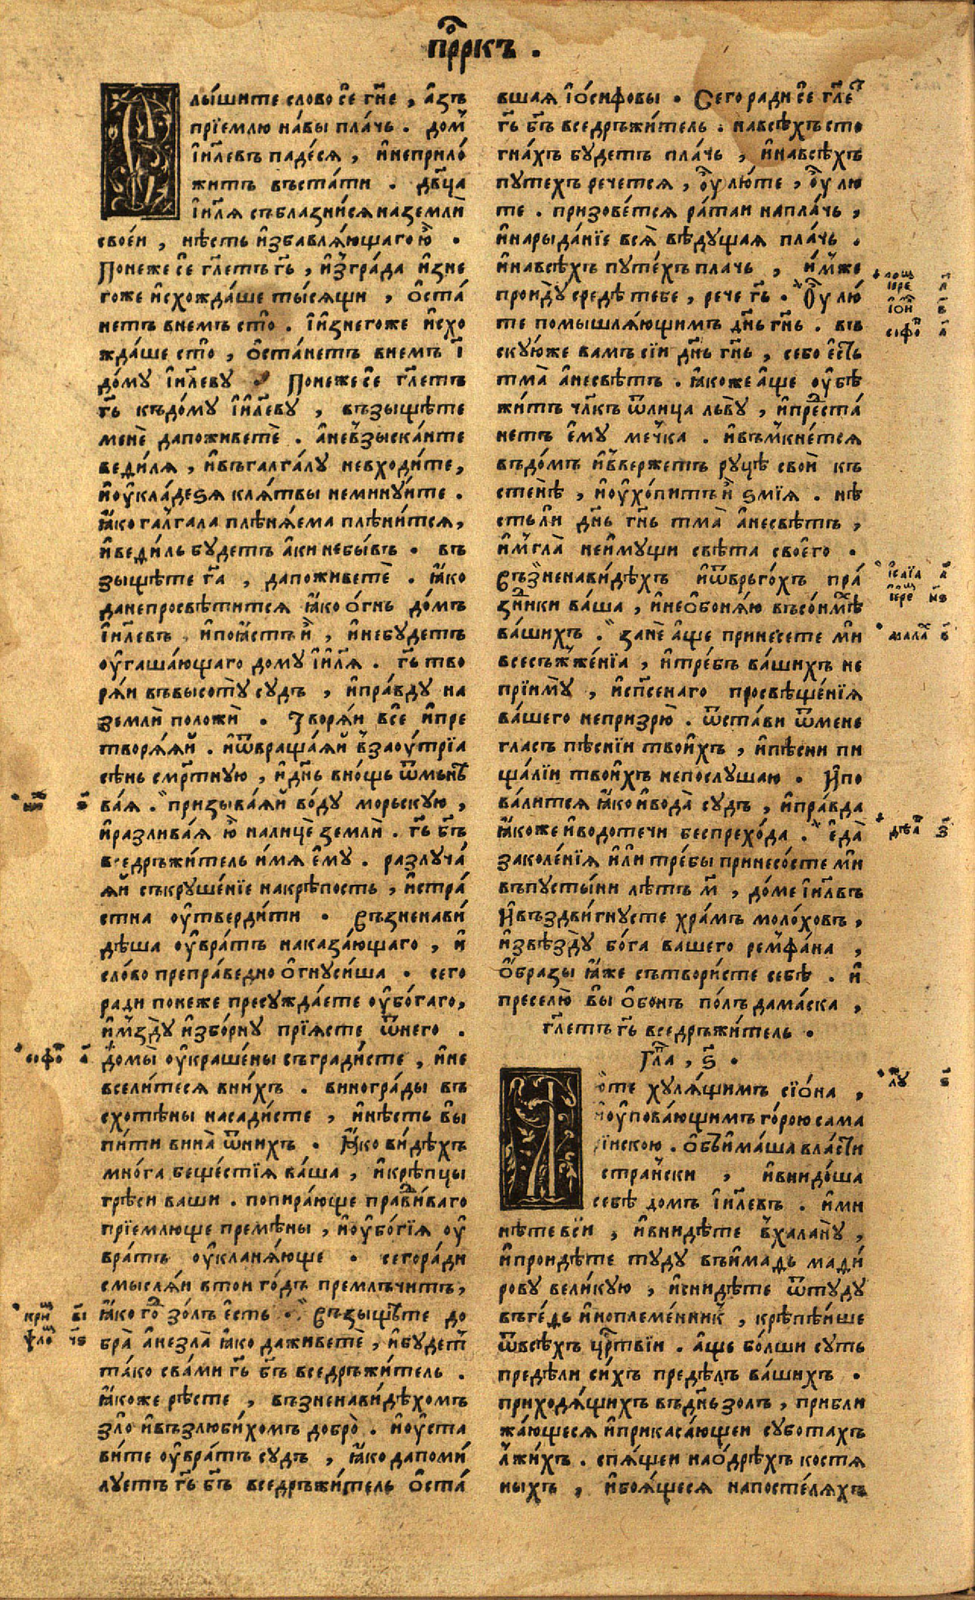 пррⷪ҇къ .
лы́шите слово се́ гн҃е , а҆́зъ
прїе́млю на́вы пла́чь . до́м̾
і҆и҃левъ паде́ся , и҆неприло́
житъ въста́ти . дв҃ца
і҆и҃ля съблазни́ся наземли̑
свое́и , нѣ́сть и҆збавля́ющаго ю҆̀ .
Понеже се́ гл҃етъ гь҃ , и҆з̾гра́да и҆зне
гоже и҆схожда́ше ты́сящи , ѡ҆ста́
нетъ внемъ сто̀ . І҆изнегоже и҆схо
жда́ше сто̀ , ѡ҆ста́нетъ внемъ і҃
до́му і҆и҃леву . Понеже се́ гл҃етъ
гь҃ къдо́му і҆и҃леву , възыщѣ́те
менѐ дапоживетѐ . а҆невзыска́ите
веди́ля , и҆въгалга́лу невходи́те,
и҆ѹ҆кла́деѕя кля́твы немину́ите .
ꙗ҆́ко га́лгала плѣня́ема плѣни́тся,
и҆веди́ль будетъ а҆́ки небы́въ . въ
зыщѣ́те га҃ , дапоживетѐ . ꙗ҆́ко
данепросвѣти́тся ꙗ҆́ко ѻ҆́гнь до́мъ
і҆и҃левъ , и҆поꙗ҆́стъ и҆̀ , и҆небудетъ
ѹ҆гаша́ющаго дому і҆и҃ля . гь҃ тво
ря́и въвысоту̀ су́дъ , и҆пра́вду на
земли̑ положѝ . Творя́и всѐ и҆пре
творя́ꙗи . и҆ѿвраща́ꙗи в̾заоу́трїа
сѣ́нь смр҃тную , и҆дн҃ь вно́щь ѿмьнѣ
ва́я . призыва́ꙗи во́ду морьскую ,
и҆разлива́я ю҆̀ налицѐ земли̑ . гь҃ бъ҃
вседръжи́тель и҆́мя е҆му̀ . разлуча́
ꙗи съкруше́нїе накрѣ́пость , и҆стра́
стна ѹ҆тверди́ти . Възненави́
дѣша ѹ҆вра́тъ наказа́ющаго , и҆
сло́во препра́ведно ѡ҆гнуси́ша . сего
ради понеже пресужда́ете ѹ҆бо́гаго,
и҆мзду̀ и҆збо́рну прїя́сте ѿнего .
до́мы̀ ѹ҆краше́ны съгради́сте , и҆не
всели́теся вни́хъ . виногра́ды въ
схотѣ́ны насади́сте , и҆нѣ́сть вы̀
пи́ти вина̀ ѿнихъ . ꙗ҆́ко ви́дѣхъ
мно́га беще́стїя ва́ша , и҆крѣ́пцы
грѣси ваши . попира́юще пра́виваго
прїе́млюще преме́ны , и҆ѹ҆бо́гїя ѹ҆
вра́тъ ѹ҆кланя́юще . сегора́ди
смысля́и втои го́дъ премлъчи́тъ,
ꙗ҆́ко го́ⷣ зо́лъ е҆́сть . Възыщѣ́те до
бра̀ а҆незла̀ ꙗ҆́ко даживетѐ , и҆бу́дет̾
та́ко сва́ми гь҃ бъ҃ вседръжи́тель .
ꙗ҆́коже рѣ́сте , възненави́дѣхомъ
зло̀ и҆възлюби́хомъ добро̀ . и҆ѹ҆ста́
ви́те ѹ҆вра́тъ су́дъ , ꙗ҆́ко дапоми́
луетъ гь҃ бъ҃ вседръжи́тель ѡ҆ста́
вшая І҆ѡ́сифовы . Сего ради се́ гл҃еⷮ
гь҃ бъ҃ вседръжи́тель : навсѣ́хъ сто
гна́хъ будетъ пла́чь , и҆навсѣ́хъ
путехъ речется , ѹ҆ лю́те , ѹ҆ лю
те . призове́тся ра́таи напла́чь ,
и҆нарыда́нїе вся̀ вѣ́дущая пла́чь .
и҆навсѣ́хъ путе́хъ плачь , и҆́мже
проиду̀ средѣ̀ тебе , рече гь҃ . Ѹ҆ лю́
те помышля́ющимъ дн҃ь гн҃ь . въ
ску́юже вамъ сїи дн҃ь гн҃ь , себо е҆́сть
тма̀ а҆несвѣ́тъ . ꙗ҆́коже а҆́ще ѹ҆бѣ
жи́тъ чл҃къ ѿлица льву̀ , и҆преста́
нетъ е҆му̀ ме́чка . и҆въмкне́тся
въдо́мъ и҆ввержетъ ру́цѣ свои̑ къ
стенѣ̀ , и҆ѹ҆хо́питъ и҆̀ ѕмїя . нѣ́
стьли дн҃ь гн҃ь тма̀ а҆несвѣ́тъ ,
и҆мгла̀ неи҆мущи свѣ́та своего̀ .
Възненави́дѣхъ и҆ѿвръго́хъ пра́
зⷣники ва́ша , и҆необоня́ю въсои́миⷯѣ
ва́шихъ . занѐ а҆́ще принесете ми̑
всесъжже́нїа , и҆тре́бъ ва́шихъ не
прїиму̀ , и҆спсе́наго просвѣще́нїя
ва́шего непризрю̀ . ѿста́ви ѿмене
гла́съ пѣ́снїи твои́хъ , и҆пѣ́сни пи
ща́лїи твои́хъ непослушаю . И҆по
ва́лится ꙗ҆́ко и҆вода̀ су́дъ , и҆пра́вда
ꙗ҆́коже и҆водотечи беспрехо́да . е҆да̀
заколе́нїя и҆лѝ тре́бы принесо́сте ми̑
въпусты́ни лѣ́тъ м҃ , до́ме і҆и҃лвъ
И҆въздви́гнусте хра́мъ моло́ховъ ,
и҆звѣзду̀ бо́га вашего ремфа́на ,
ѡ҆́бразы ꙗ҆́же сътвори́сте себѣ̀ . и҆
преселю̀ вы̀ ѻ҆бонъ по́лъ дама́ска ,
гл҃етъ гь҃ вседръжи́тель .
Гла҃ , ѕ҃ .
ѻ҆те хуля́щимъ сїо́на ,
и҆ѹ҆пова́ющимъ го́рою сама
рі́искою . ѡ҆б̾има́ша вла́сти
стра́нски , и҆внидо́ша
себѣ̀ домъ і҆и҃левъ . и҆́ми
нѣ́те вси̑ , и҆вни́дѣте в̾халану̀ ,
и҆проидѣ́те туду въи҆мадь мади́
рову вели́кую , и҆сни́дѣте ѿтуду
въге́дь и҆ноплеме́нник̾ , крѣпѣ́ише
ѿвсѣ́хъ црⷭ҇твїи . а҆́ще бо́лши суть
предѣ́ли си́хъ предѣ́лъ ва́шихъ .
приходя́щихъ въдн҃ь зо́лъ , прибли
жа́ющеся и҆прикаса́ющеи субо́тахъ
лжи́хъ . спя́щеи наѻ҆дрѣ́хъ костя
ныхъ , и҆боя́щеся напосте́ляхъ